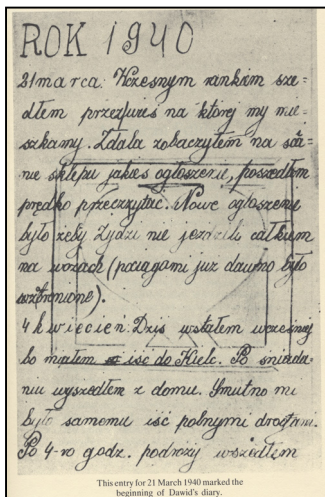 ROK 1940
21 marca: Wczesnym rankim sze-
dłem przez wieś na której my mie-
szkamy. Zdala zobaczyłem na ścia-
nie sklepu jakieś ogłoszenie, poszedłem
prędko przeczytać. Nowe ogłoszenie
było żeby Żydzi nie jezdzili całkiem
na wozach (pociągami już dawno było
wzbronione).
4 kwiecień: Dziś wstałem wczesnej
bo miałem iść do Kielc. Po śniada-
niu wyszedłem z domu. Smutno mi
było samemu iść polnymi drogami.
Po 4-ro godz. podróży wszedłem
This entry for 21 March 1940 marked the
beginning of Dawid's diary.